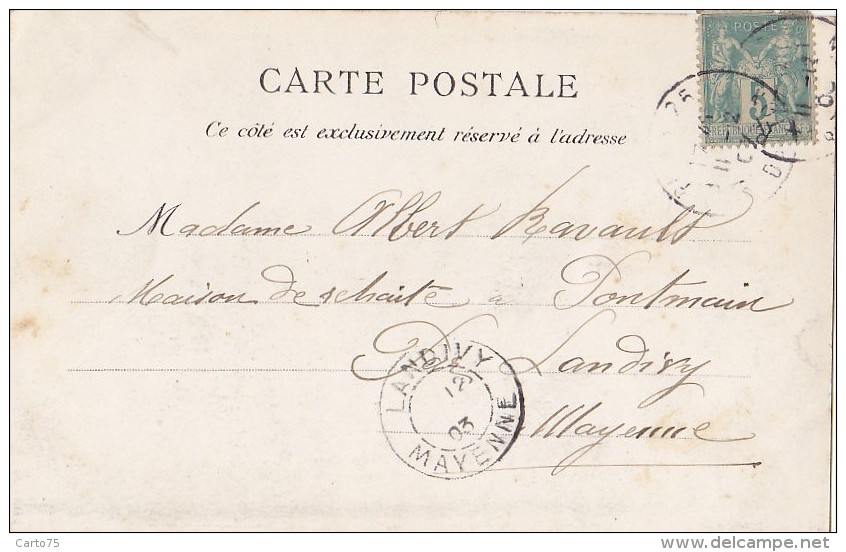 POSTE
5
REPUBLIQUE FRANÇAISE
CARTE POSTALE
Ce côté est exclusivement réservé à l'adresse
Madame Albert Ravault
Maison de retraite à Pontmain
Landivy
Mayenne
LANDIVY
12
03
MAYENNE
Carto75
delcampe.net